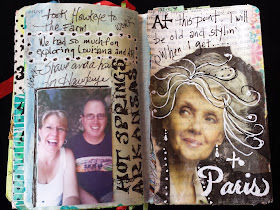 took Hawkeye to
the Farm
We had so much fun
exploring Louisiana and
Shaw and a have
Hawkeye
HOT SPRINGS
ARKANSAS
At this point I will
be old and stylin'
When I get....
to
Paris